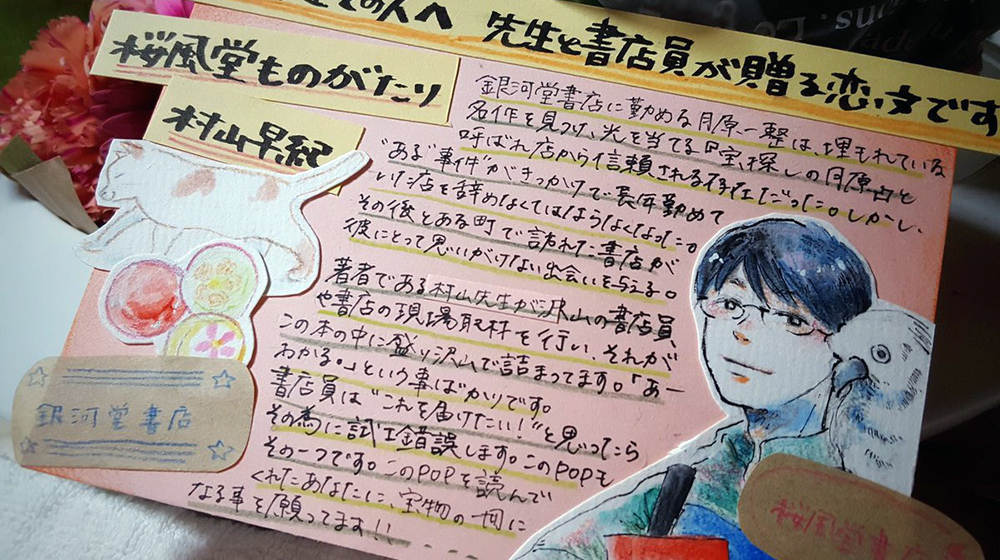 ての人へ 先生と書店員が贈る恋文です
桜風堂ものがたり
村山早紀
銀河堂書店に勤める月原一整は、埋もれている
名作を見つけ、光を当てる『宝探しの月原』と
呼ばれ店から信頼される存在だった。しかし、
"ある"事件"がきっかけで長年勤めて
いた店を辞めなくてはならなくなった。
その後とある町で訪れた書店が
彼にとって思いがけない出会いを与える。
著者である村山先生が沢山の書店員
や書店の現場取材を行い、それが
この本の中に盛り沢山で詰まってます。「あー
わかる。」という事ばかりです。
書店員は"これを届けたい!"と思ったら
その為に試工錯誤します。このPOPも
その一つです。このPOPを読んで
くれたあなたに、宝物の一冊に
なる事を願ってます!!
銀河堂書店
桜風堂書